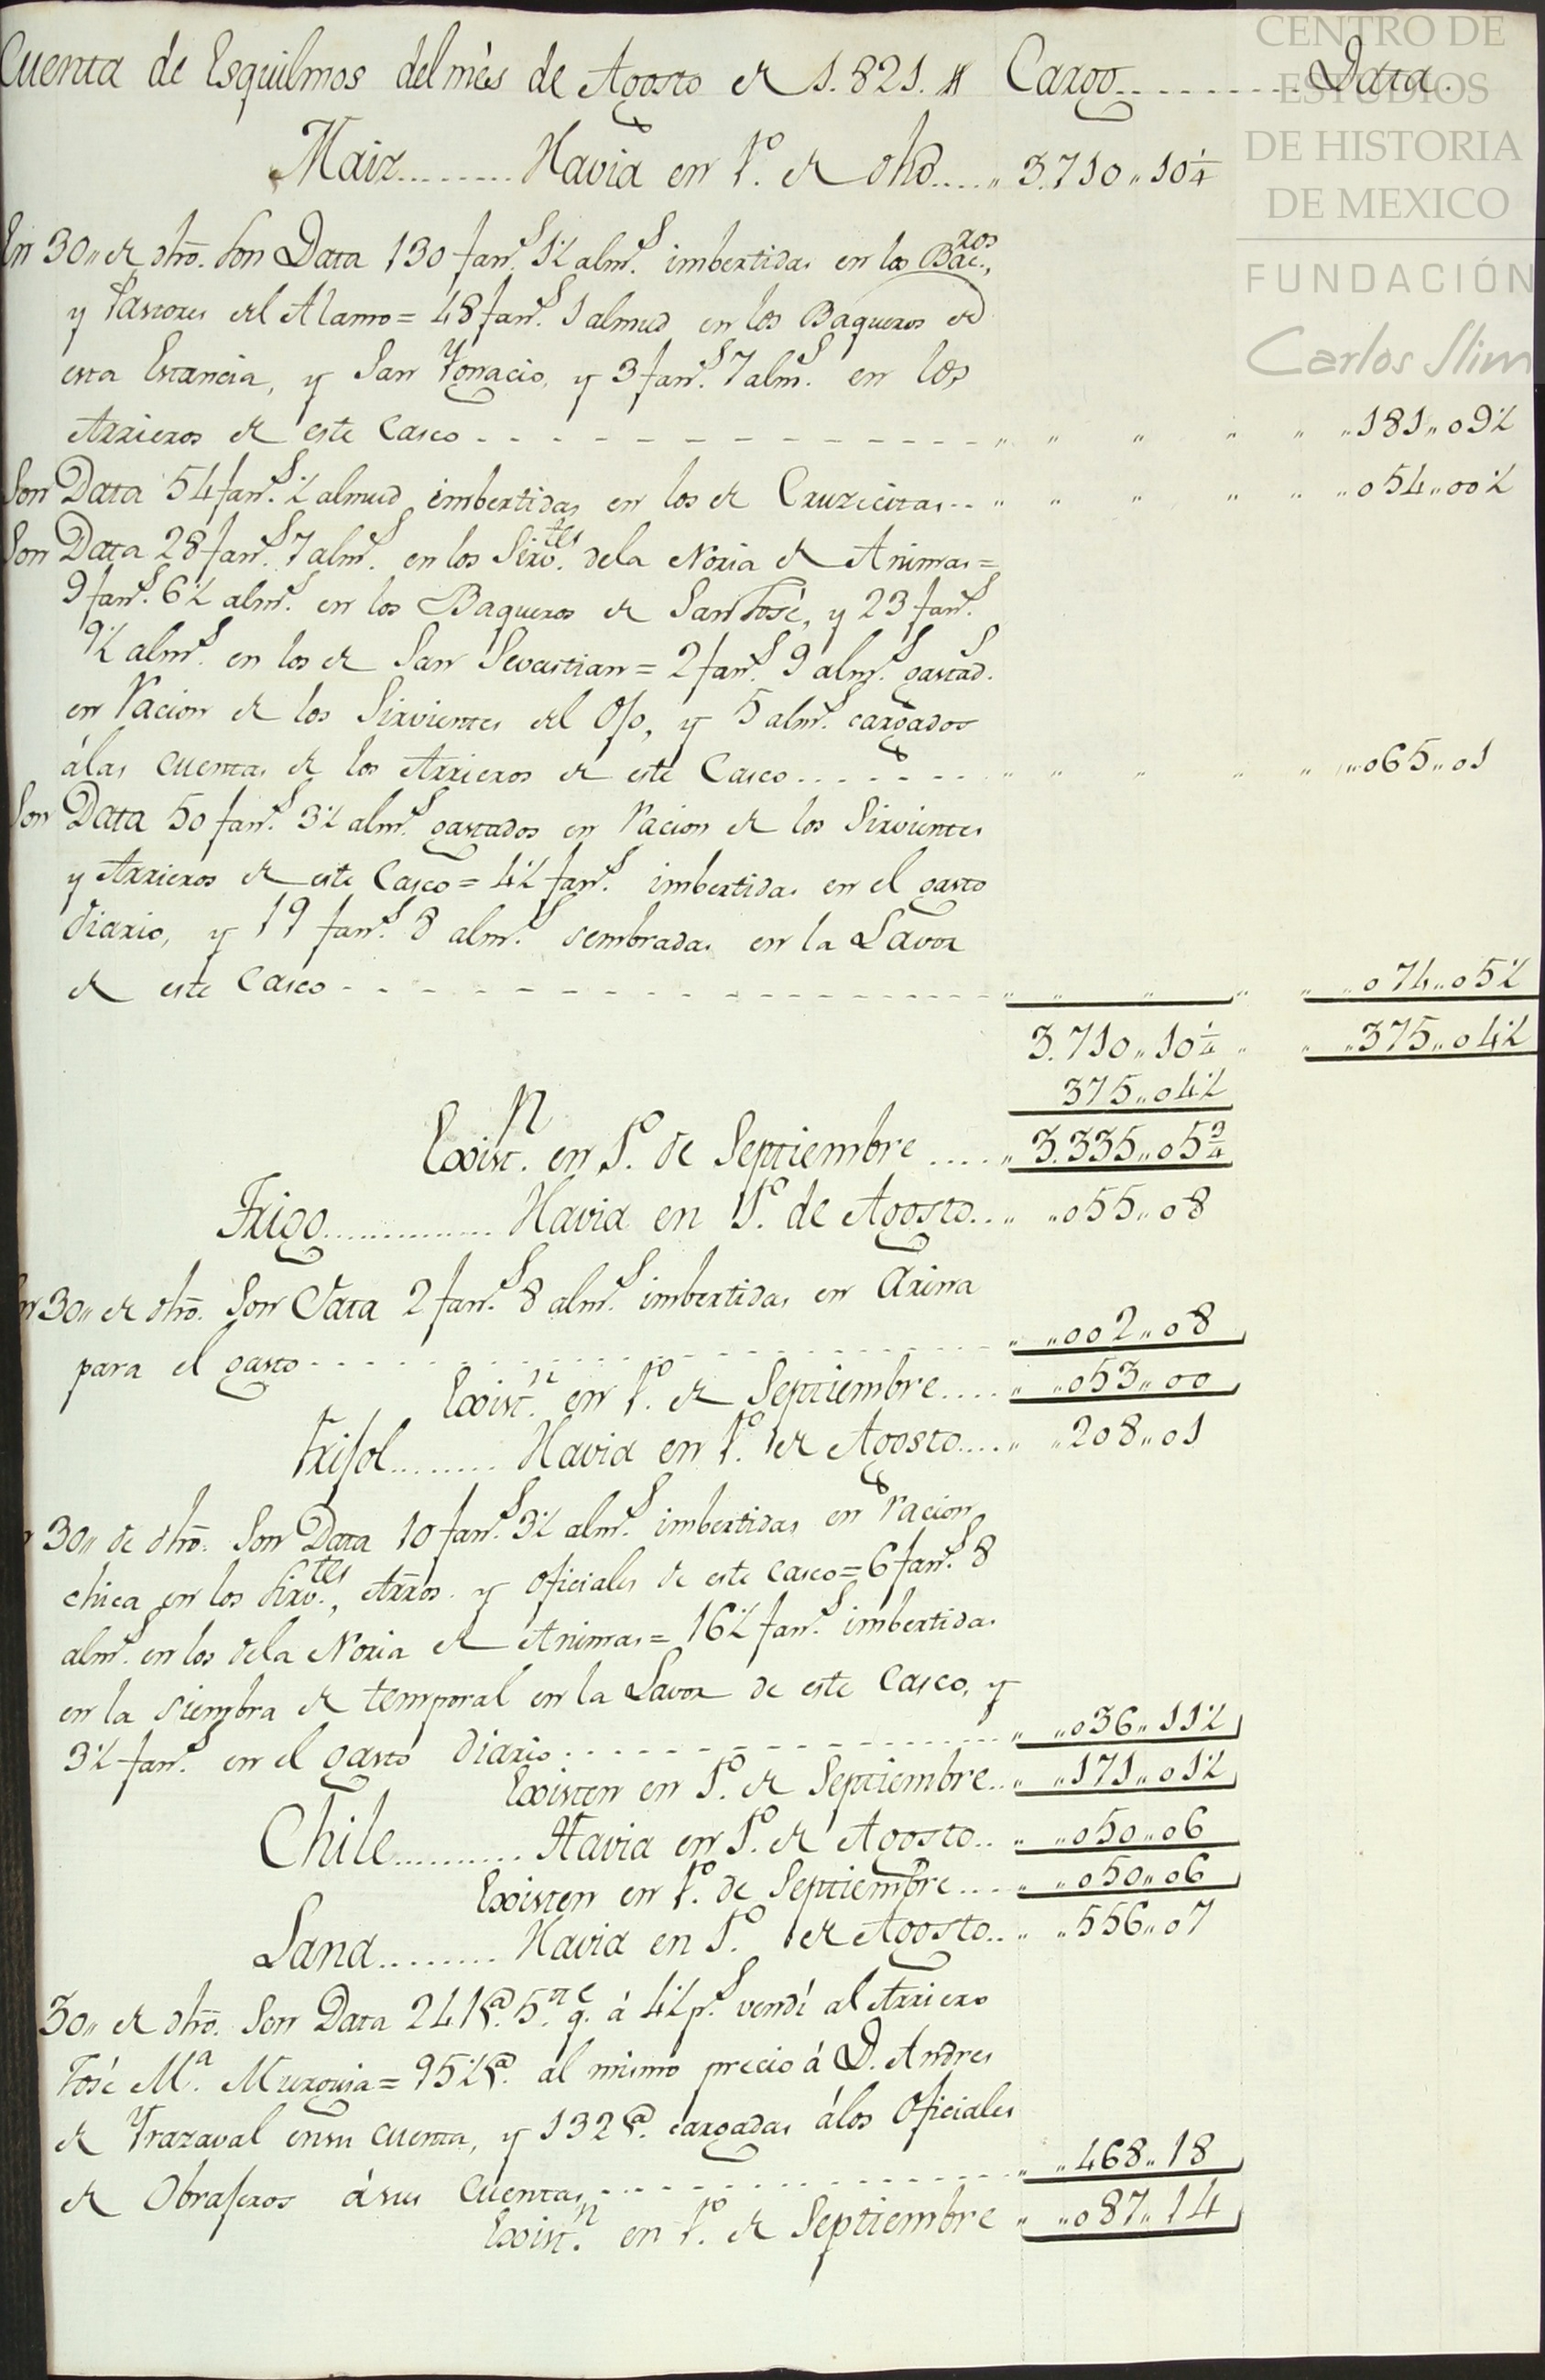 Cuenta de Esquilmos del mès de Agosto de 1.821. # Cargo.......... Data.
Maiz......... Havia en 1º. de dho..... „ 3.710„10¼
En 30„ de dho. Son Data 130 fanˢ. 1½ almˢ. imbertidas en los Baq.ʳᵒˢ,
y Pastores del Alamo = 48 fanˢ. 1 almud en los Baqueros de
esta Estancia, y San Ygnacio, y 3 fanˢ. 7 almˢ. en los
Arrieros de este Casco - - - - - - - - - - „ „ „ „ „ „181„09½
Son Data 54 fanˢ. ½ almud imbertidas en los de Cruzecitas.. „ „ „ „ „ „054„00½
Son Data 28 fanˢ. 7 almˢ. en los Sirv.ᵗᵉˢ dela Noria de Animas =
9 fanˢ. 6½ almˢ. en los Baqueros de San José, y 23 fanˢ.
9½ almˢ. en los de San Sevastian = 2 fanˢ. 9 almˢ. gastadˢ.
en Racion de los Sirvientes del O/o, y 5 almˢ. cargados
álas cuentas de los Arrieros de este Casco......... „ „ „ „ „ „065„01
Son Data 50 fanˢ. 3½ almˢ. gastados en Racion de los Sirvientes
y Arrieros de este Casco = 4½ fanˢ. imbertidas en el gasto
diario, y 19 fanˢ. 8 almˢ. sembradas en la Lavor
de este Casco - - - - - - - - - - „ „ „ „ „ „074„05½
3.710„10¼ „ „ „375„04½
375„04½
Exist.ⁿ en 1º. de Septiembre ..... „ 3.335„05¾
Trigo............... Havia en 1º. de Agosto... „ „055„08
En 30„ de dho. Son Data 2 fanˢ. 8 almˢ. imbertidas en Arina
para el gasto - - - - - - - - - - „ „002„08
Exist.ⁿ en 1º. de Septiembre.... „ „053„00
Frijol......... Havia en 1º. de Agosto..... „ „208„01
30„ de dho. Son Data 10 fanˢ. 3½ almˢ. imbertidas en racion
chica en los Sirv.ᵗᵉˢ, Arros. y Oficiales de este casco = 6 fanˢ. 8
almˢ. en los dela Noria de Animas = 16½ fanˢ. imbertidas
en la siembra de temporal en la Lavor de este Casco, y
3½ fanˢ. en el gasto diario............... „ „036„11½
Existen en 1º. de Septiembre.. „ „171„01½
Chile........... Havia en 1º. de Agosto.. „ „050„06
Existen en 1º. de Septiembre.... „ „050„06
Lana......... Havia en 1º. de Agosto.. „ „556„07
30„ de dho. Son Data 241 @. 5 qᵉ. á 4½ pˢ. vendí al Arriero
José Mª. Murguia = 95½ @. al mismo precio á D. Andres
de Yrazaval ensu cuenta, y 132 @. cargadas álos Oficiales
de Obrajeros ásus Cuentas - - - - - - - - „ „468„18
Exist.ⁿ en 1º. de Septiembre „ „087„14
CENTRO DE
ESTUDIOS
DE HISTORIA
DE MEXICO
FUNDACIÓN
Carlos Slim